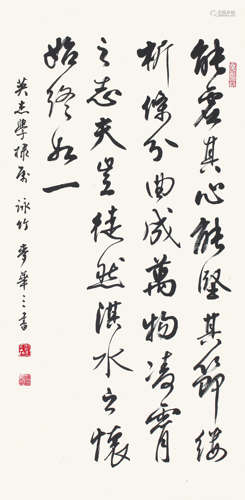 能虛其心能堅其節縷
析條分曲成萬物凌霄
之志夫豈徒然淇水之懷
始終如一
英杰學棣属 詠竹 麥華三書